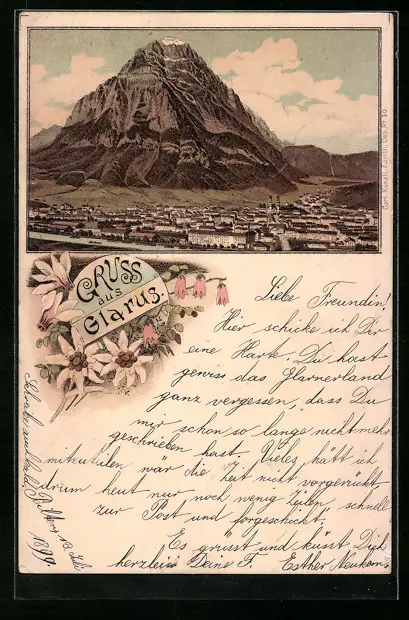 Carl Künzli, Zürich. Dep. № 30.
GRUSS
aus
Glarus.
Liebe Freundin!
Hier schicke ich Dir
eine Karte. Du hast
gewiss das Glarnerland
ganz vergessen, dass Du
mir schon so lange nicht mehr
geschrieben hast. Vieles hätt ich
mitzuteilen wär die Zeit nicht vorgerückt
drum heut nur noch wenig Zeilen schnell
zur Post und forgeschickt.
Es grüsst und küsst Dich
herzlich Deine F. Esther
Schreibe auch bald,
1899.